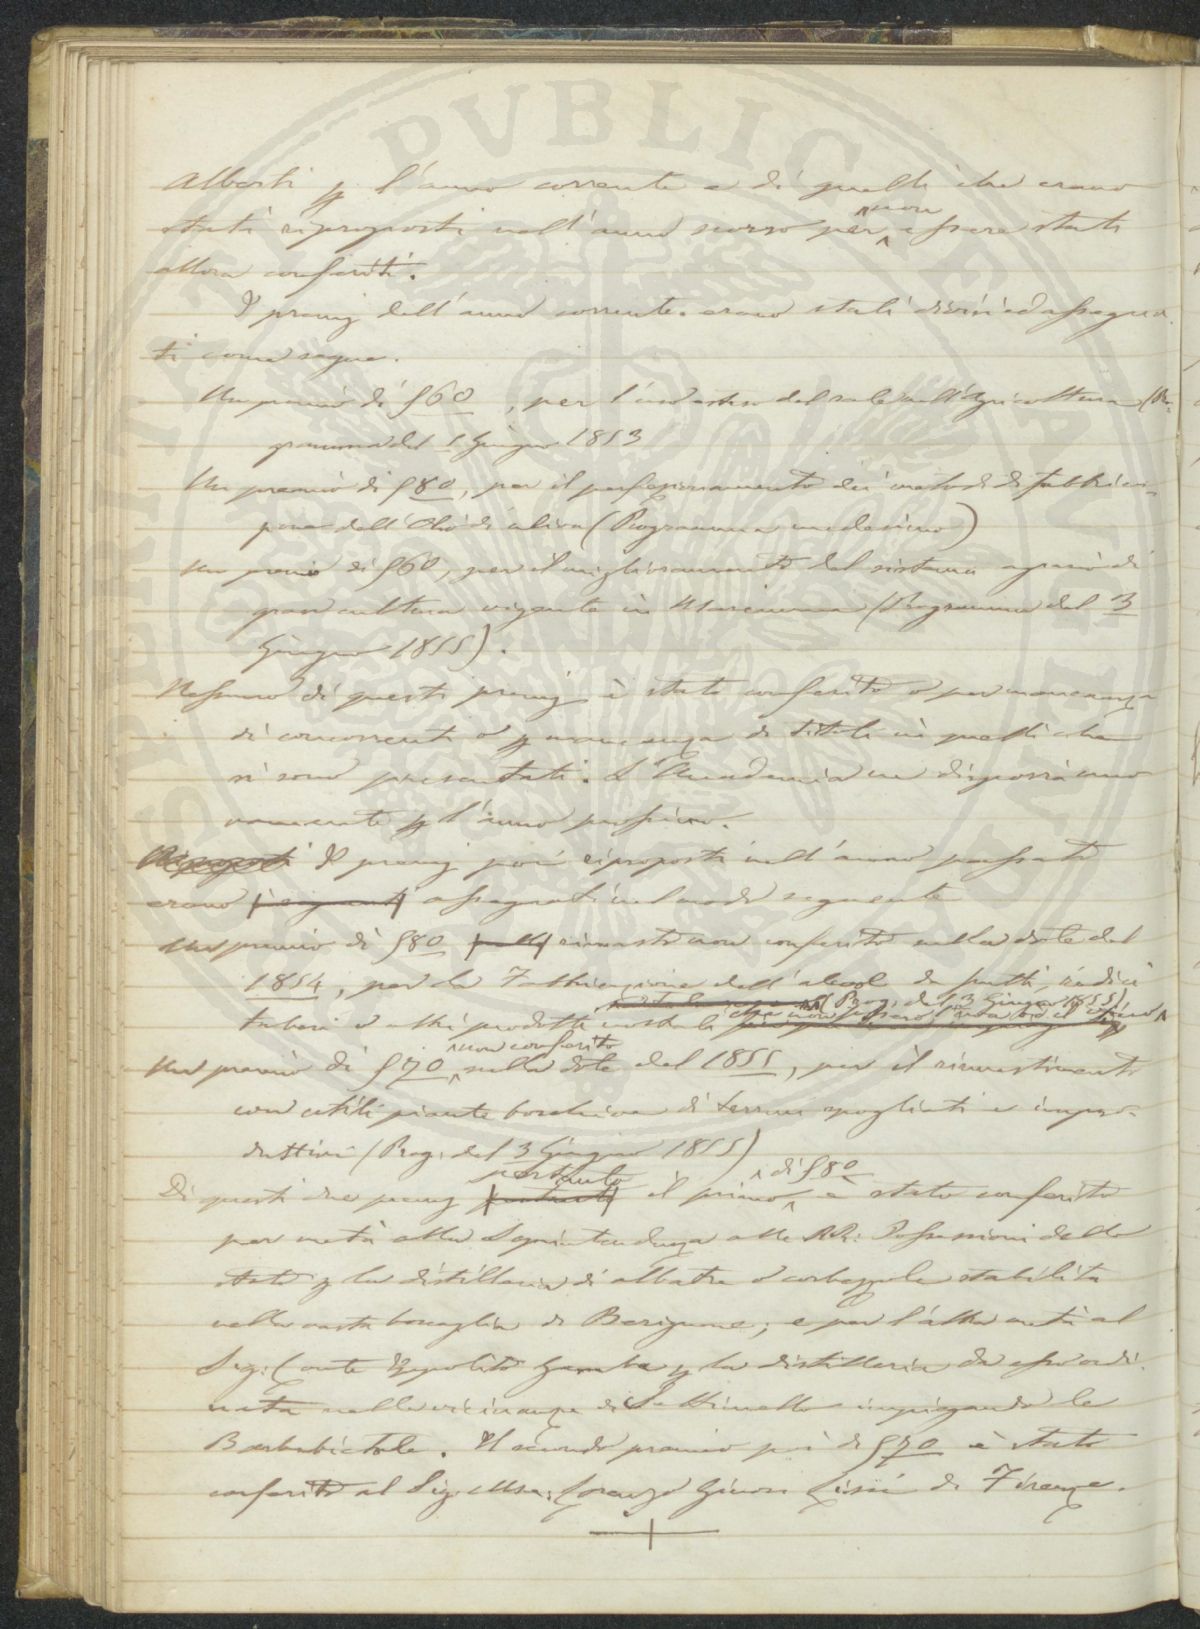 PVBLICE
Alberti p l'anno corrente e di quelli che erano
stati riproposti nell'anno scorso per non essere stati
allora conferiti.
I premj dell'anno corrente erano stati divisi ed assegna
ti come segue.
Un premio di £60, per l'uso esteso del sale nell'Agricoltura (Pro=
gramma del 1 Giugno 1853
Un premio di £80, per il perfezionamento dei metodi di fabbrica-
zione dell'Olio di uliva (Programma medesimo)
Un premio di £60, per il miglioramento del sistema agrario di
gran cultura vigente in Maremma (Programma del 3
Giugno 1855).
Nessuno di questi premj è stato conferito o per mancanza
di concorrenti o p mancanza di titoli in quelli che
si sono presentati. L'Accademia ne disporrà nuo
vamente p l'anno prossimo.
Riproposti I premj poi riproposti nell'anno passato
erano i seguenti assegnati nel modo seguente
Un premio di £80 rimasto non conferito sulla dote del
1854, per la Fabbricazione dell'alcool da frutti, radici
(Prog. del 3 Giugno 1855)
tuberi o altri prodotti nostrali che non fossero l'uva ed il vino
non conferito
Un premio di £70 sulla dote del 1855, per il rinvestimento
con utili piante boschive di terreni spogliati e impro-
duttivi (Prog. del 3 Giugno 1855)
pertanto di £80
Di questi due premj il primo è stato conferito
per metà alla Soprintendenza alle RR: Possessioni dello
Stato p la distilleria di albatre o corbezzole stabilita
nella vasta boscaglia di Berignone; e per l'altra metà al
Sig: Conte Ippolito Gamba p la distilleria da esso ordi-
nata nelle vicinanze di Settimello impiegando le
Barbabietole. Il secondo premio poi di £70 è stato
conferito al Sig. Mse: Lorenzo Ginori Lisci di Firenze.